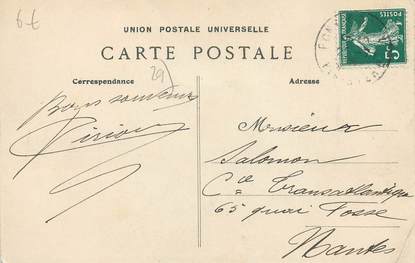 6-€
UNION POSTALE UNIVERSELLE
CARTE POSTALE
Correspondance
29
Adresse
REPUBLIQUE FRANÇAISE
POSTES
5
Bons souvenirs
Monsieur
Salomon
Cie Transatlantique
65 quai Fosse
Nantes